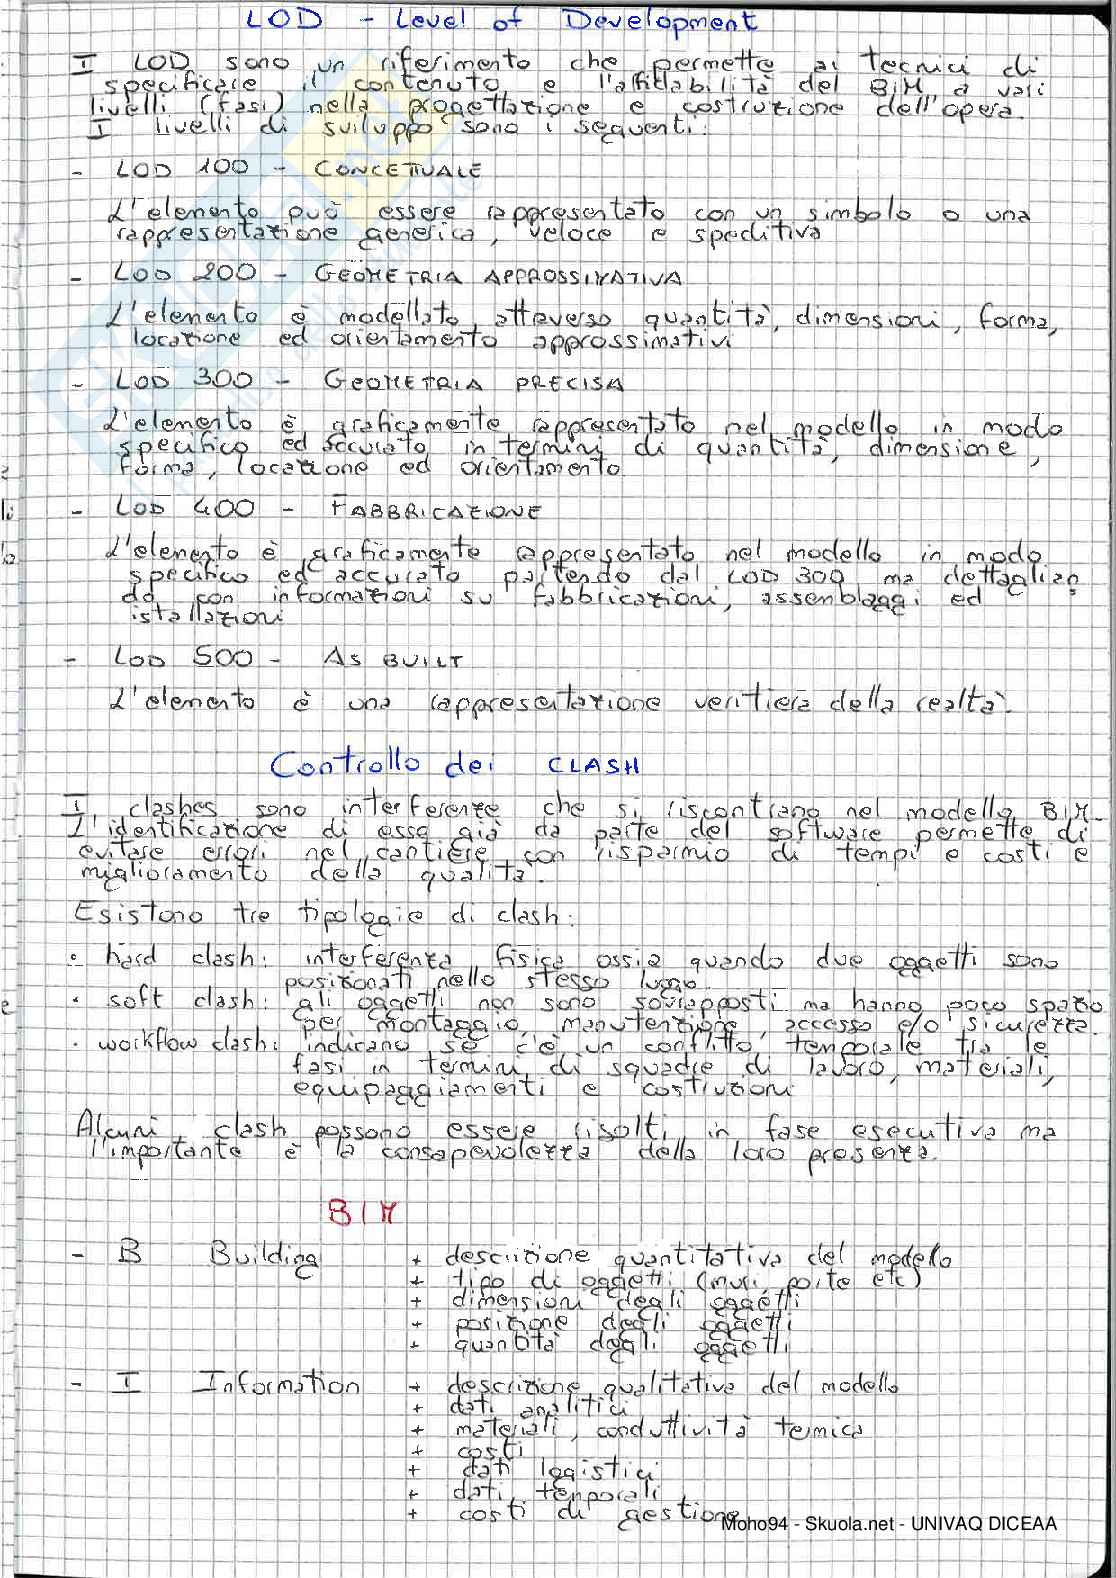 LOD - Level of Development
I LOD sono un riferimento che permette ai tecnici di
specificare il contenuto e l'affidabilità del BIM, a vari
livelli (fasi) nella progettazione e costruzione dell'opera.
I livelli di sviluppo sono i seguenti:
- LOD 100 - CONCETTUALE
L'elemento può essere rappresentato con un simbolo o una
rappresentazione generica, veloce e speditiva
- LOD 200 - GEOMETRIA APPROSSIMATIVA
L'elemento è modellato attraverso quantità, dimensioni, forma,
locazione ed orientamento approssimativi
- LOD 300 - GEOMETRIA PRECISA
L'elemento è graficamente rappresentato nel modello in modo
specifico ed accurato in termini di quantità, dimensione,
forma, locazione ed orientamento
- LOD 400 - FABBRICAZIONE
L'elemento è graficamente rappresentato nel modello in modo
specifico ed accurato partendo dal LOD 300 ma dettaglian
do con informazioni su fabbricazioni, assemblaggi ed
istallazioni
- LOD 500 - AS BUILT
L'elemento è una rappresentazione veritiera della realtà.
Controllo dei CLASH
I clashes sono interferenze che si riscontrano nel modello BIM.
L'identificazione di essa già da parte del software permette di
evitare errori nel cantiere con risparmio di tempi e costi e
miglioramento della qualità.
Esistono tre tipologie di clash:
• hard clash: interferenza fisica ossia quando due oggetti sono
posizionati nello stesso luogo
• soft clash: gli oggetti non sono sovrapposti ma hanno poco spazio
per montaggio, manutenzione, accesso e/o sicurezza.
• workflow clash: indicano se c'è un conflitto temporale tra le
fasi in termini di squadre di lavoro, materiali,
equipaggiamenti e costruzioni
Alcuni clash possono essere risolti in fase esecutiva ma
l'importante è la consapevolezza della loro presenza.
BIM
- B Building + descrizione quantitativa del modello
+ tipo di oggetti (muri, porte etc)
+ dimensioni degli oggetti
+ posizione degli oggetti
+ quantità degli oggetti
- I Information + descrizione qualitativa del modello
+ dati analitici
+ materiali, conduttività termica
+ costi
+ dati logistici
+ dati temporali
+ costi di gestione
Moho94 - Skuola.net - UNIVAQ DICEAA